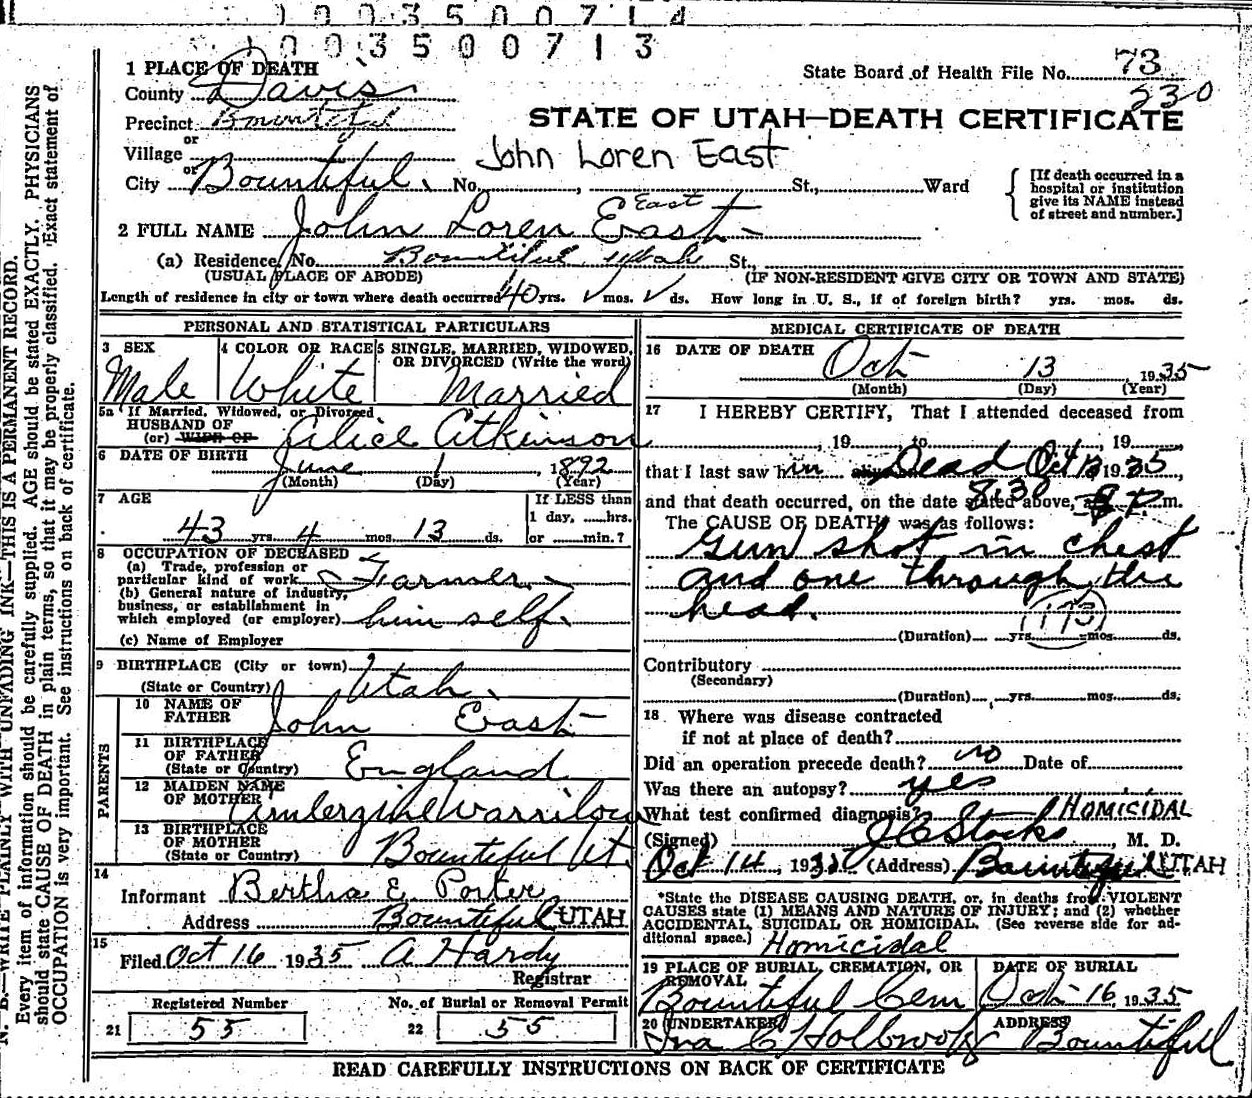 1003500714
1003500713
1 PLACE OF DEATH
State Board of Health File No. 73
230
County Davis
Precinct Bountiful
STATE OF UTAH—DEATH CERTIFICATE
or
Village
John Loren East
or
City Bountiful. No. , St., Ward
[If death occurred in a hospital or institution give its NAME instead of street and number.]
East
2 FULL NAME John Loren East
(a) Residence, No. Bountiful Utah St.,
(USUAL PLACE OF ABODE) (IF NON-RESIDENT GIVE CITY OR TOWN AND STATE)
Length of residence in city or town where death occurred 40 yrs. mos. ds. How long in U. S., if of foreign birth? yrs. mos. ds.
PERSONAL AND STATISTICAL PARTICULARS
3 SEX
Male
4 COLOR OR RACE
White
5 SINGLE, MARRIED, WIDOWED, OR DIVORCED (Write the word)
Married
5a If Married, Widowed, or Divorced
HUSBAND OF
(or) WIFE OF Alice Atkinson
6 DATE OF BIRTH
June 1, 1892
(Month) (Day) (Year)
7 AGE
43 yrs. 4 mos. 13 ds.
If LESS than
1 day, hrs.
or min.?
8 OCCUPATION OF DECEASED
(a) Trade, profession or
particular kind of work Farmer
(b) General nature of industry,
business, or establishment in
which employed (or employer) him self.
(c) Name of Employer
9 BIRTHPLACE (City or town)
(State or Country) Utah.
PARENTS
10 NAME OF FATHER John East
11 BIRTHPLACE OF FATHER (State or Country) England
12 MAIDEN NAME OF MOTHER Warrilow
13 BIRTHPLACE OF MOTHER (State or Country) Bountiful Ut.
14
Informant Bertha E. Porter
Address Bountiful UTAH
15
Filed Oct 16 1935 A Hardy
Registrar
Registered Number
21 55
No. of Burial or Removal Permit
22 55
MEDICAL CERTIFICATE OF DEATH
16 DATE OF DEATH
Oct 13 1935
(Month) (Day) (Year)
17 I HEREBY CERTIFY, That I attended deceased from
, 19 to , 19 ,
that I last saw him Dead Oct 13 1935
and that death occurred, on the date stated above, 8:30 P m.
The CAUSE OF DEATH was as follows:
Gun shot in chest
and one through the
head.
(173)
(Duration) yrs. mos. ds.
Contributory
(Secondary)
(Duration) yrs. mos. ds.
18 Where was disease contracted
if not at place of death?
Did an operation precede death? no Date of
Was there an autopsy? yes
What test confirmed diagnosis? HOMICIDAL
(Signed) J C Stocks, M. D.
Oct 14, 1935 (Address) Bountiful UTAH
*State the DISEASE CAUSING DEATH, or, in deaths from VIOLENT
CAUSES state (1) MEANS AND NATURE OF INJURY; and (2) whether
ACCIDENTAL, SUICIDAL OR HOMICIDAL. (See reverse side for ad-
ditional space.) Homicidal
19 PLACE OF BURIAL, CREMATION, OR REMOVAL
Bountiful Cem
DATE OF BURIAL
Oct 16, 1935
20 UNDERTAKER
Ira C Holbrook
ADDRESS
Bountiful
READ CAREFULLY INSTRUCTIONS ON BACK OF CERTIFICATE
N. B.—WRITE PLAINLY WITH UNFADING INK—THIS IS A PERMANENT RECORD.
Every item of information should be carefully supplied. AGE should be stated EXACTLY. PHYSICIANS
should state CAUSE OF DEATH in plain terms, so that it may be properly classified. Exact statement of
OCCUPATION is very important. See instructions on back of certificate.